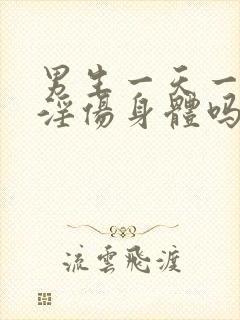 男生一天一
淫傷身體吗
流雲飛渡